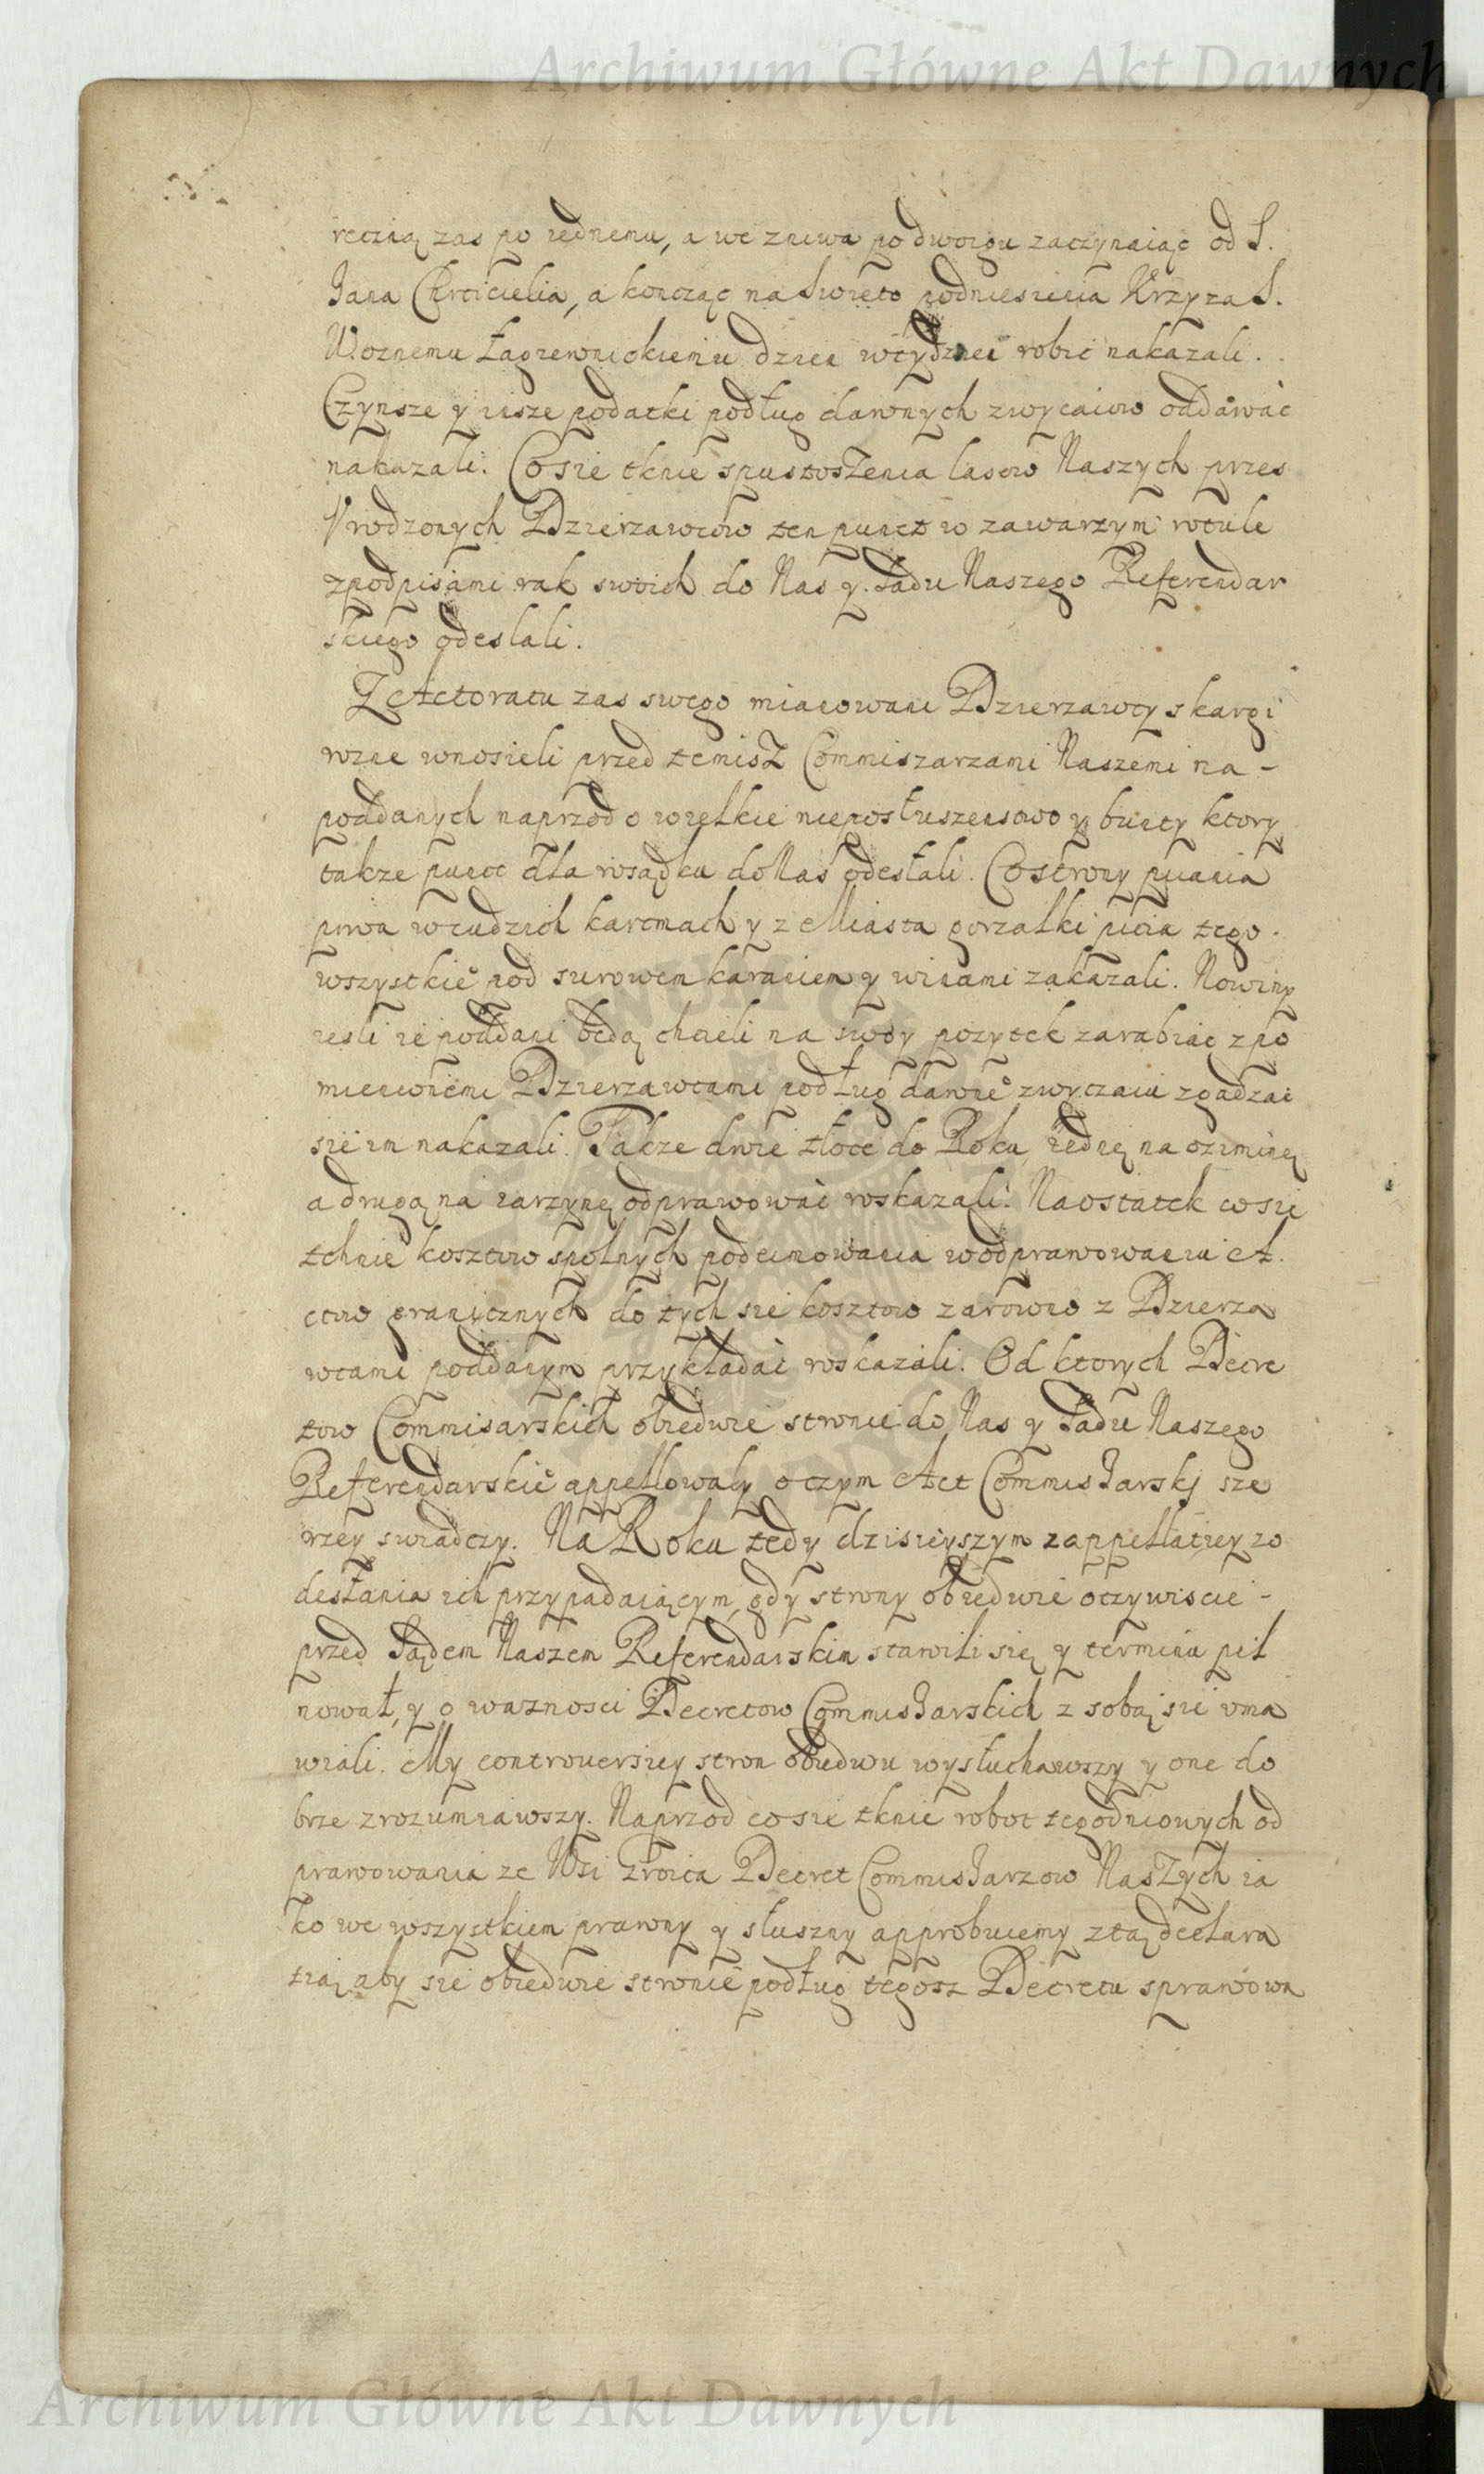 Archiwum Główne Akt Dawnych
reczną zas po iednemu, a we zniwa po dwoygu zaczynaiąc od S.
Jana Chrzciciela, a konczac na Swieto podniesienia Krzyza S.
Woznemu Łagiewnickiemu dzien w tydznei robic nakazali.
Czynsze y insze podatki podług dawnych zwycaiow oddawac
nakazali. Co sie tknie spustoszenia lasow Naszych przes
Vrodzonych Dzierzawcow ten punct w zawartym rotule
z podpisami rak swoich do Nas y Sadu Naszego Referendar
skiego odeslali.
Z Actoratu zas swego mianowani Dzierzawcy skargi
rozne wnosieli przed temisz Commiszarzami Naszemi na-
poddanych naprzod o wielkie nieposłuszenstwo y bunty ktory
takze punct dla rosądku do Nas odesłali. Co strony piiania
piwa w cudzich karcmach y z Miasta gorzałki picia tego
wszystkie° pod surowem karaniem y winami zakazali. Nowiny
iesli ie poddani będą chcieli na swoy pozytek zarabiac z po
mienionemi Dzierzawcami podług dawne° zwyczaiu zgadzac
sie im nakazali. Takze dwie tłoce do Roku iednę na oziminę
a drugą na iarzynę odprawowac roskazali. Na ostatek co sie
tchnie kosztow spolnych podeimowania w odprawowaniu A.
ctow granicznych do tych sie kosztow zarowno z Dzierza
wcami poddanym przykładac roskazali. Od ktorych Decre
tow Commisarskich obiedwie stronie do Nas y Sadu Naszego
Referendarskie° appellowały o czym Act Commissarskj sze
rzey swiadczy. Na Roku tedy dzisieyszym z appellatiey z o
desłania ich przypadaiącym, gdy strony obiedwie oczywiscie-
przed Sądem Naszem Referendarskim stawili się y terminu pil
nował, y o waznosci Decretow Commissarskich z sobą sie vma
wiali. My controuersiey stron obudwu wysłuchawszy y one do
brze zrozumiawszy. Naprzod co sie tknie robot tegodniowych od
prawowania ze Wsi Decret Commissarzow Naszych ia
ko we wszystkiem prawny y słuszny approbuiemy z tą declara
tią aby sie obiedwie stronie podług tegosz Decretu sprawowa
Archiwum Główne Akt Dawnych